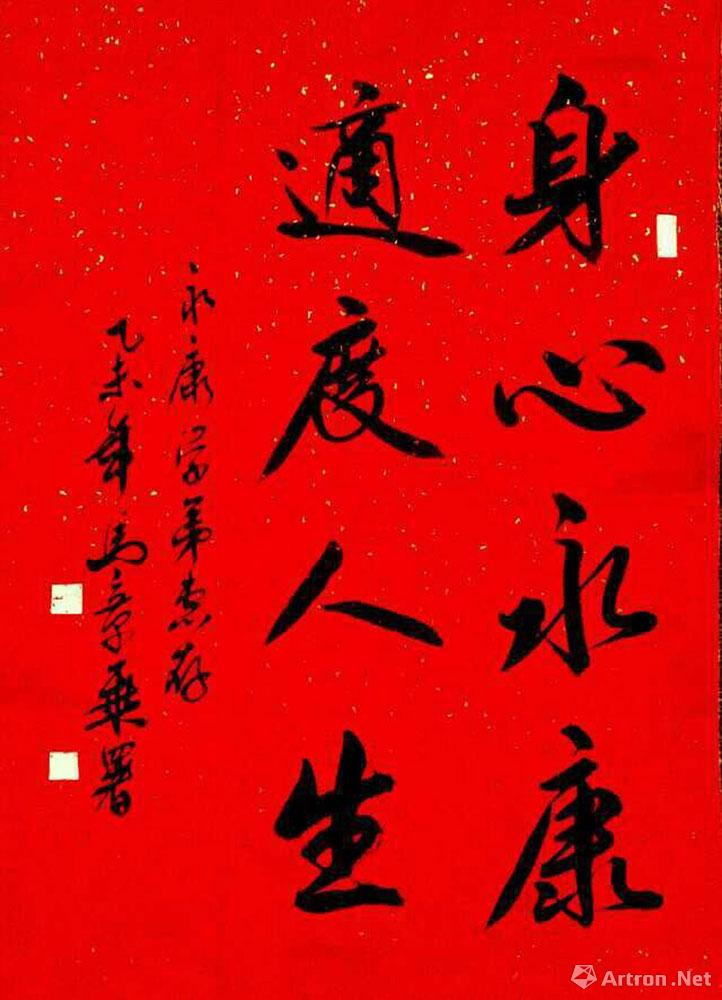 身心永康
適度人生
永康学弟惠存
乙未年馬章乘署
Artron.Net